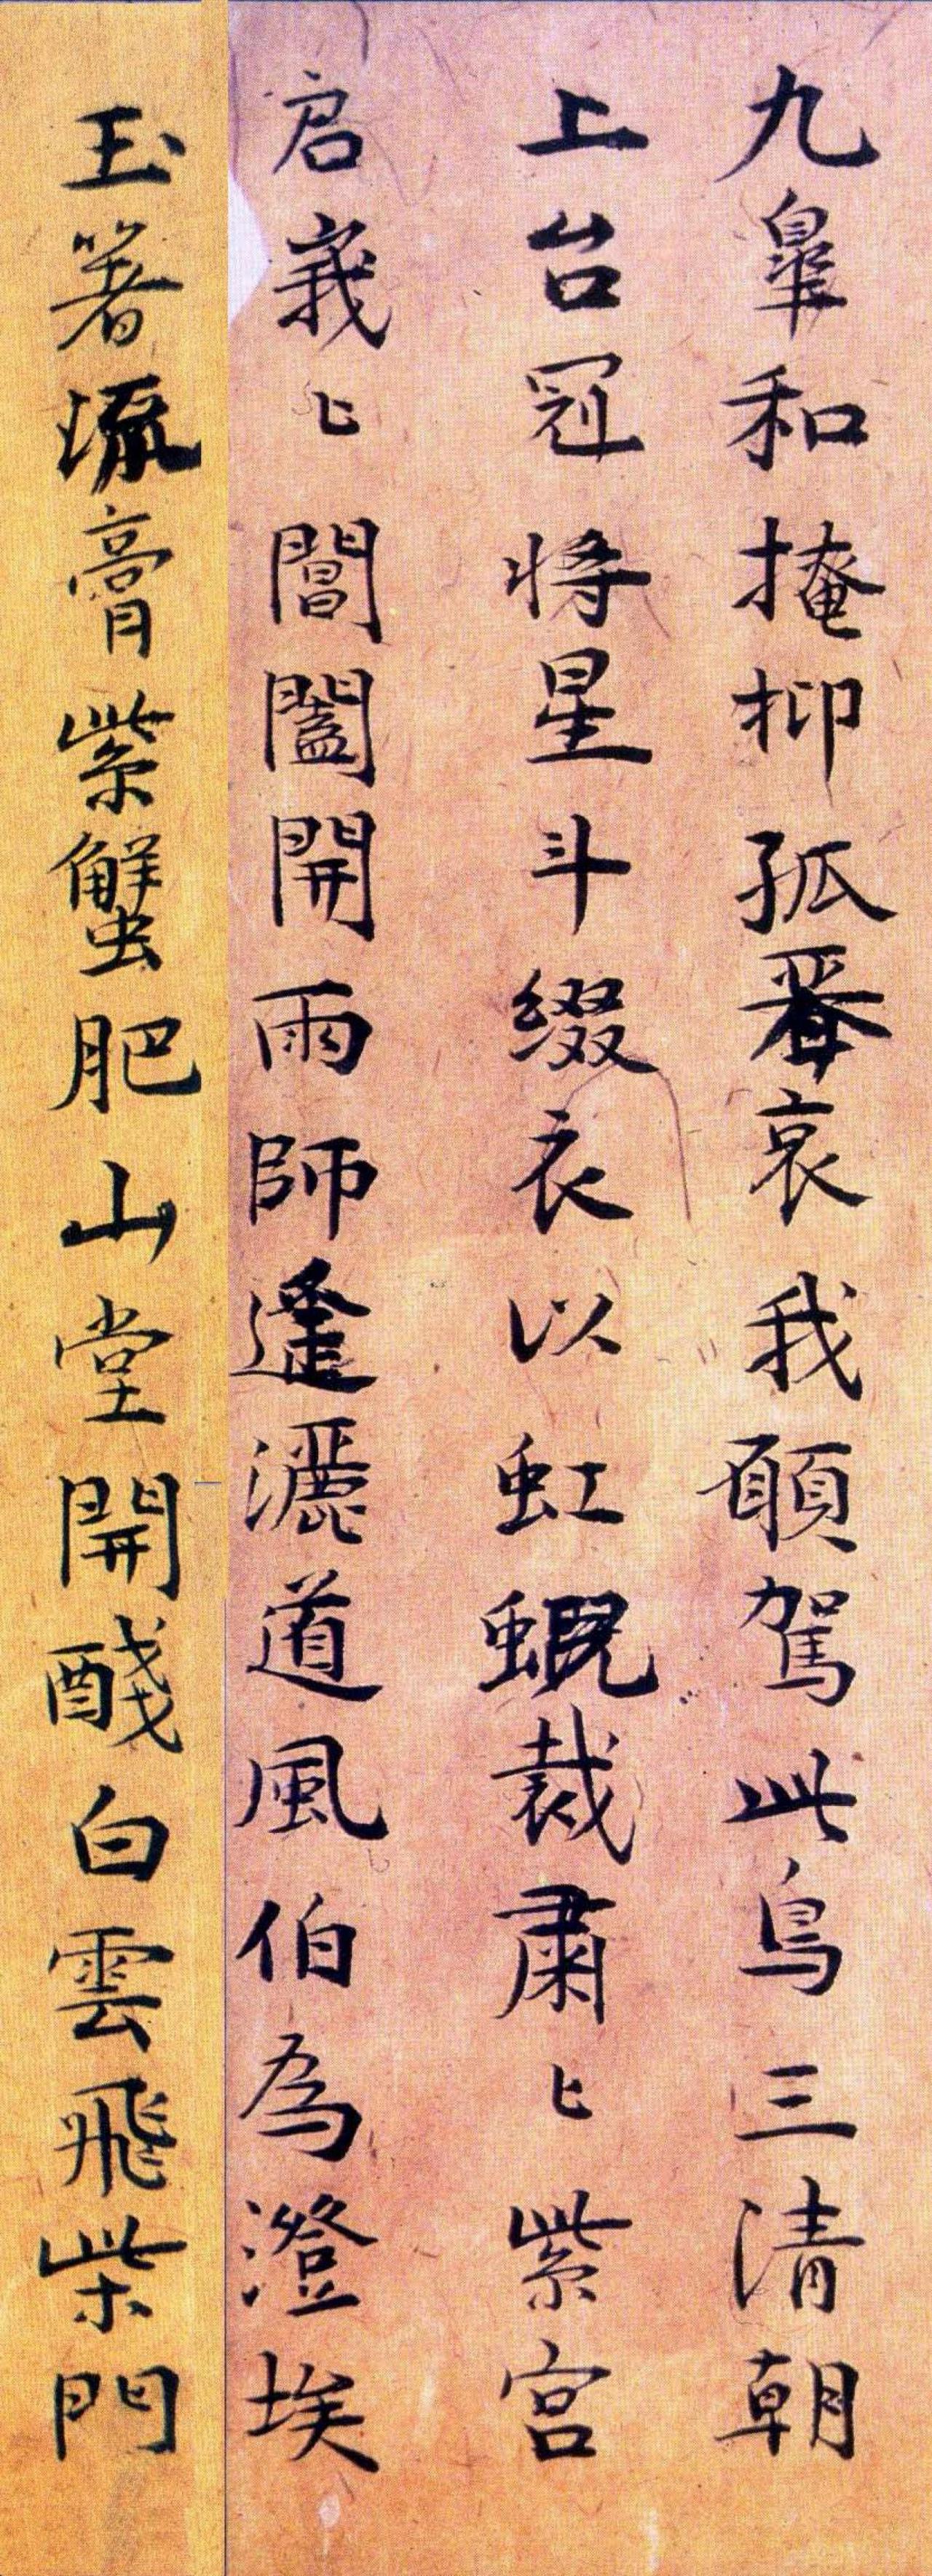 九皋和掩抑孤哀我願駕此鳥三清朝
上台冠将星斗綴衣以虹蜺裁肅〻紫宮
启峩〻閶闔開雨師遙灑道風伯為澄埃
玉箸流膏紫蟹肥山堂開醆白雲飛柴門